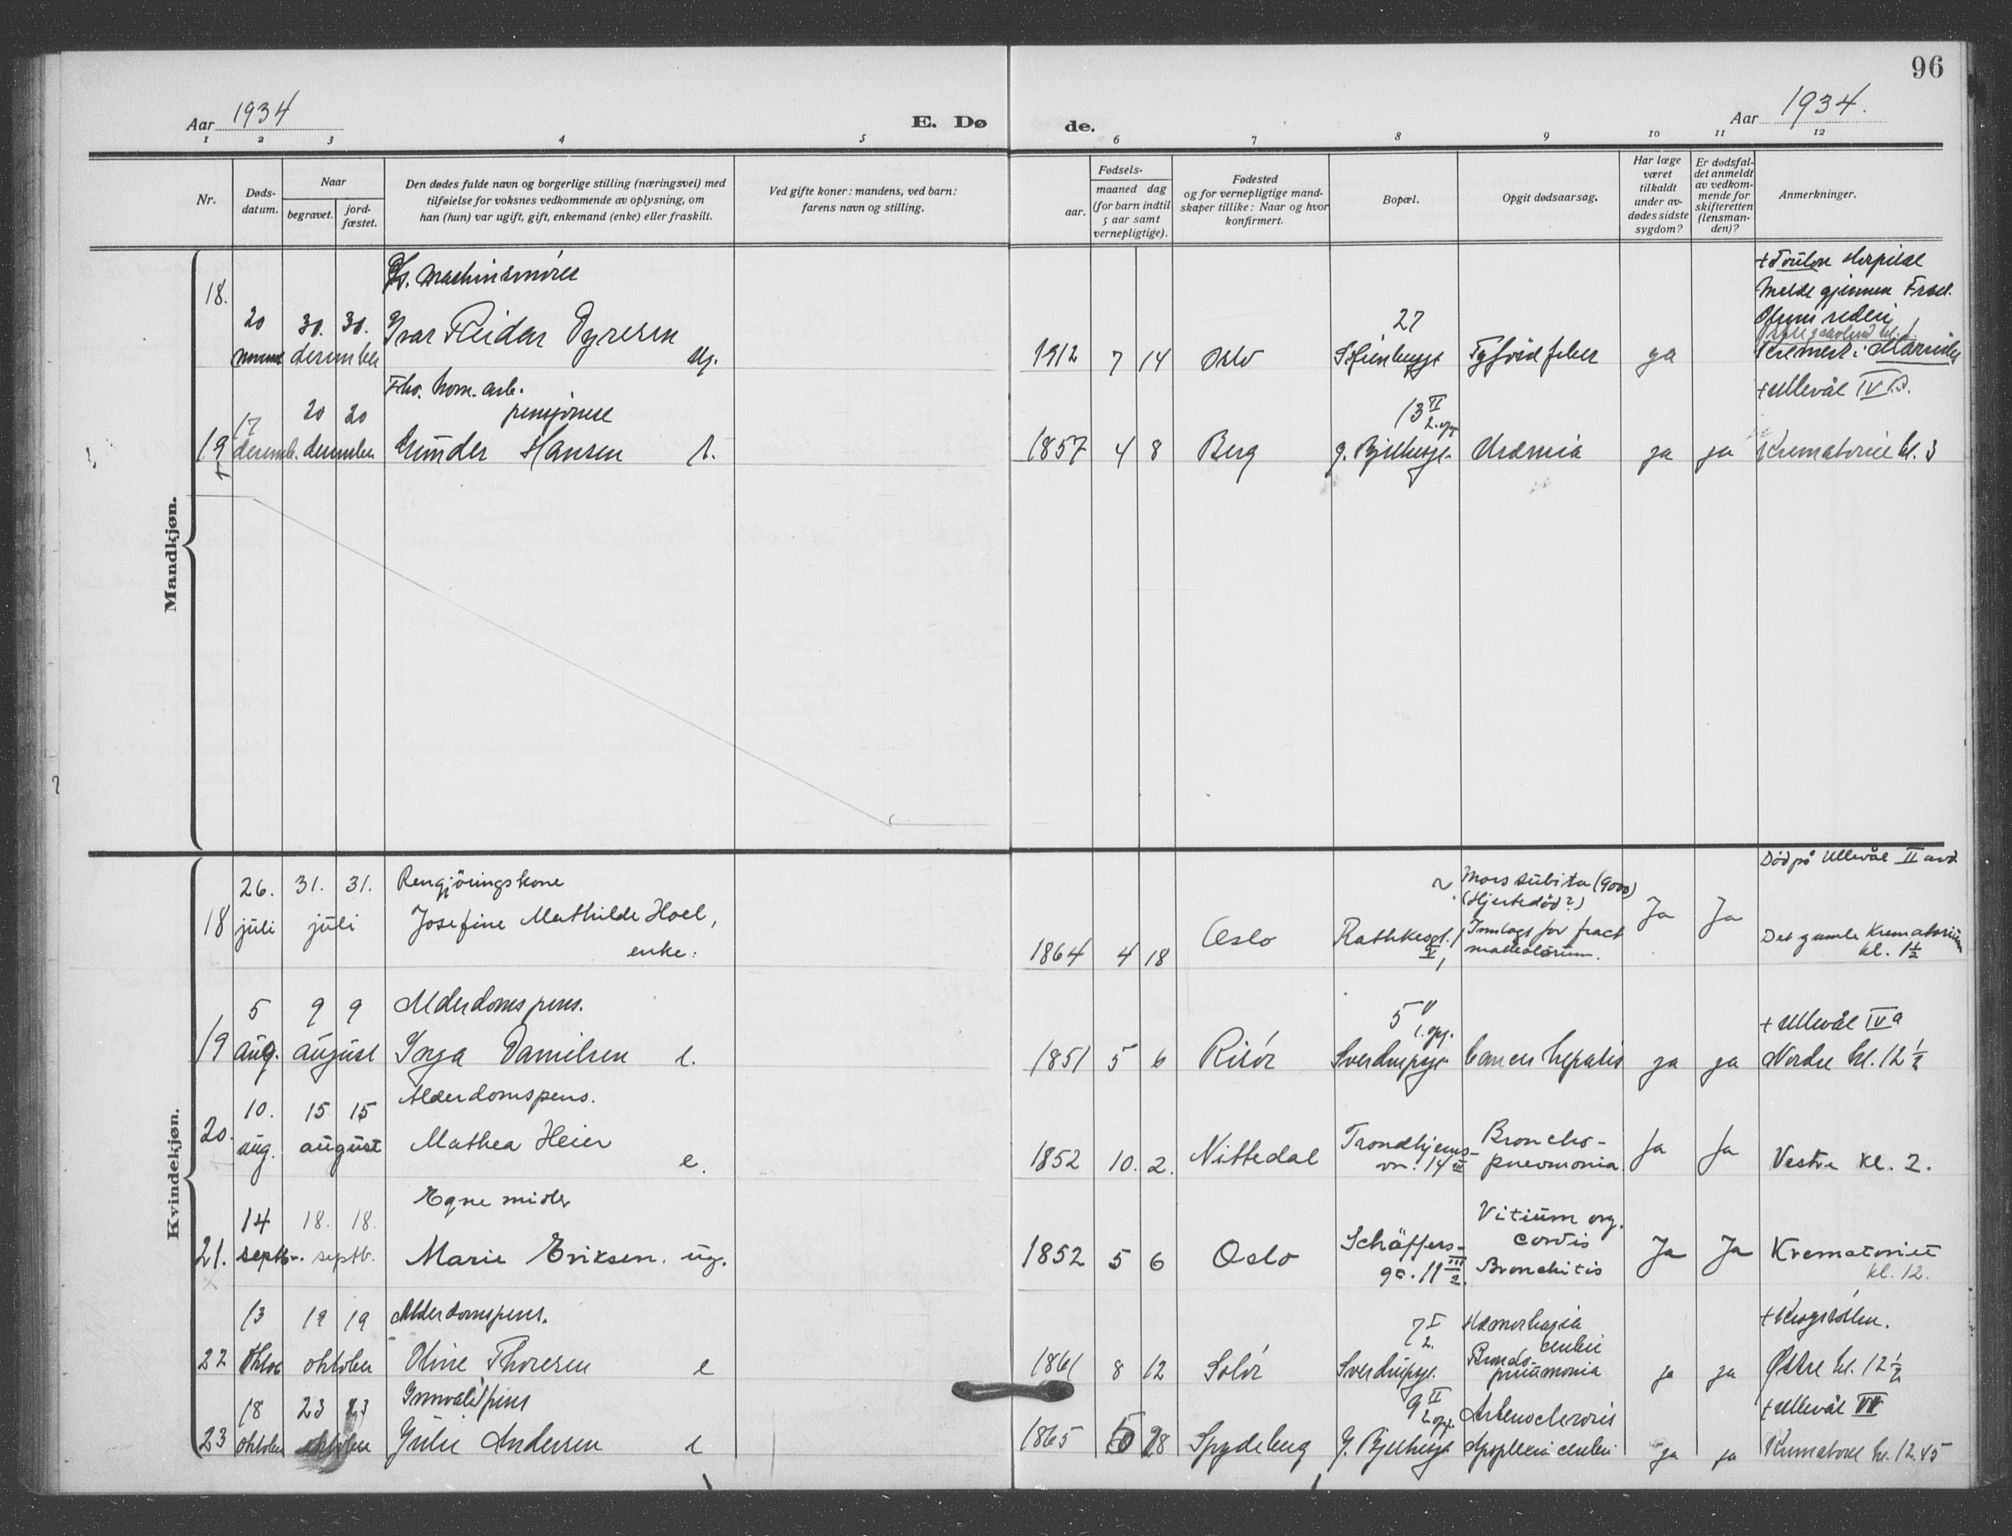 96
Aar 1934
E. Dø
de.
Aar 1934.
1 2 3 4 5 6 7 8 9 10 11 12
Nr.
Døds-
datum.
Naar
begravet.
jord-
fæstet.
Den dødes fulde navn og borgerlige stilling (næringsvei) med
tilføielse for voksnes vedkommende av oplysning, om
han (hun) var ugift, gift, enkemand (enke) eller fraskilt.
Ved gifte koner: mandens, ved barn:
farens navn og stilling.
Fødsels-
aar.
maaned dag
(for barn indtil
5 aar samt
vernepligtige).
Fødested
og for vernepligtige mand-
skaper tillike: Naar og hvor
konfirmert.
Bopæl.
Opgit dødsaarsag.
Har læge
været
tilkaldt
under av-
dødes sidste
sygdom?
Er dødsfal-
det anmeldt
av vedkom-
mende for
skifteretten
(lensman-
den)?
Anmerkninger.
Mandkjøn.
18.
20
30. 30.
desember
Ivar Reidar Dyresen
ug.
1912 7 14 Oslo
27
Tyfoid feber
ja
+ Toulon Hospital
19
17
desemb.
20 20
desember
pensjonist
Gunder Hansen e.
1857 4 8 Berg
13 II
2. opg
g. Bjelkesgt.
Uræmia
ja ja
+ Ullevål IV
Krematoriet kl. 3
Kvindekjøn.
18
26.
juli
31. 31.
juli
Rengjöringskone
Josefine Mathilde Hoel,
enke.
1864 4 18
Oslo
Rathkesgt. 1
Mors subita (9000)
(Hjertedöd?)
Innlagt for fract
malleolorum.
Ja Ja
Död på Ullevål II avd
Det gamle Krematorium
kl. 1½
19
5
aug.
9 9
august
Alderdomspens.
Inga Danielsen e.
1851 5 6 Risör
5
1. opg.
Sverdrupsgt.
Cancer hepatis
ja ja
+ Ullevål IV a
Nordre kl. 12½
20.
10.
aug.
15 15
august
Alderdomspens.
Mathea Heier
e.
1852 10. 2. Nittedal
Trondhjems-
vn. 14 III
Broncho-
pneumonia
Ja Ja
Vestre kl. 2.
21.
14
septb.
18. 18.
septb.
Egne midler
Marie Eriksen. ug.
1852 5 6 Oslo
Schäffers-
gt. 11 III
2.
Vitium org.
cordis
Bronchitis
Ja Ja
Krematoriet
kl. 12.
22
13
oktbe
19 19
oktober
Alderdomspens.
Oline Thoresen e
1861 8 12 Solör
7 I
2.
Sverdrupsgt.
Hæmorhagia
cerebri
Broncho
pneumonia
ja ja
+ Krogstötten.
Østre kl. 12½
23
18
oktober
23 23
oktober
Innvalidpens
Julie Andersen e
1865 5 28 Spydeberg
9 II
2. opg.
G. Bjelkesgt
Arteriosclerosis
Apoplexia cerebri
ja ja
+ Ullevål VII
Krematoriet kl. 12.45